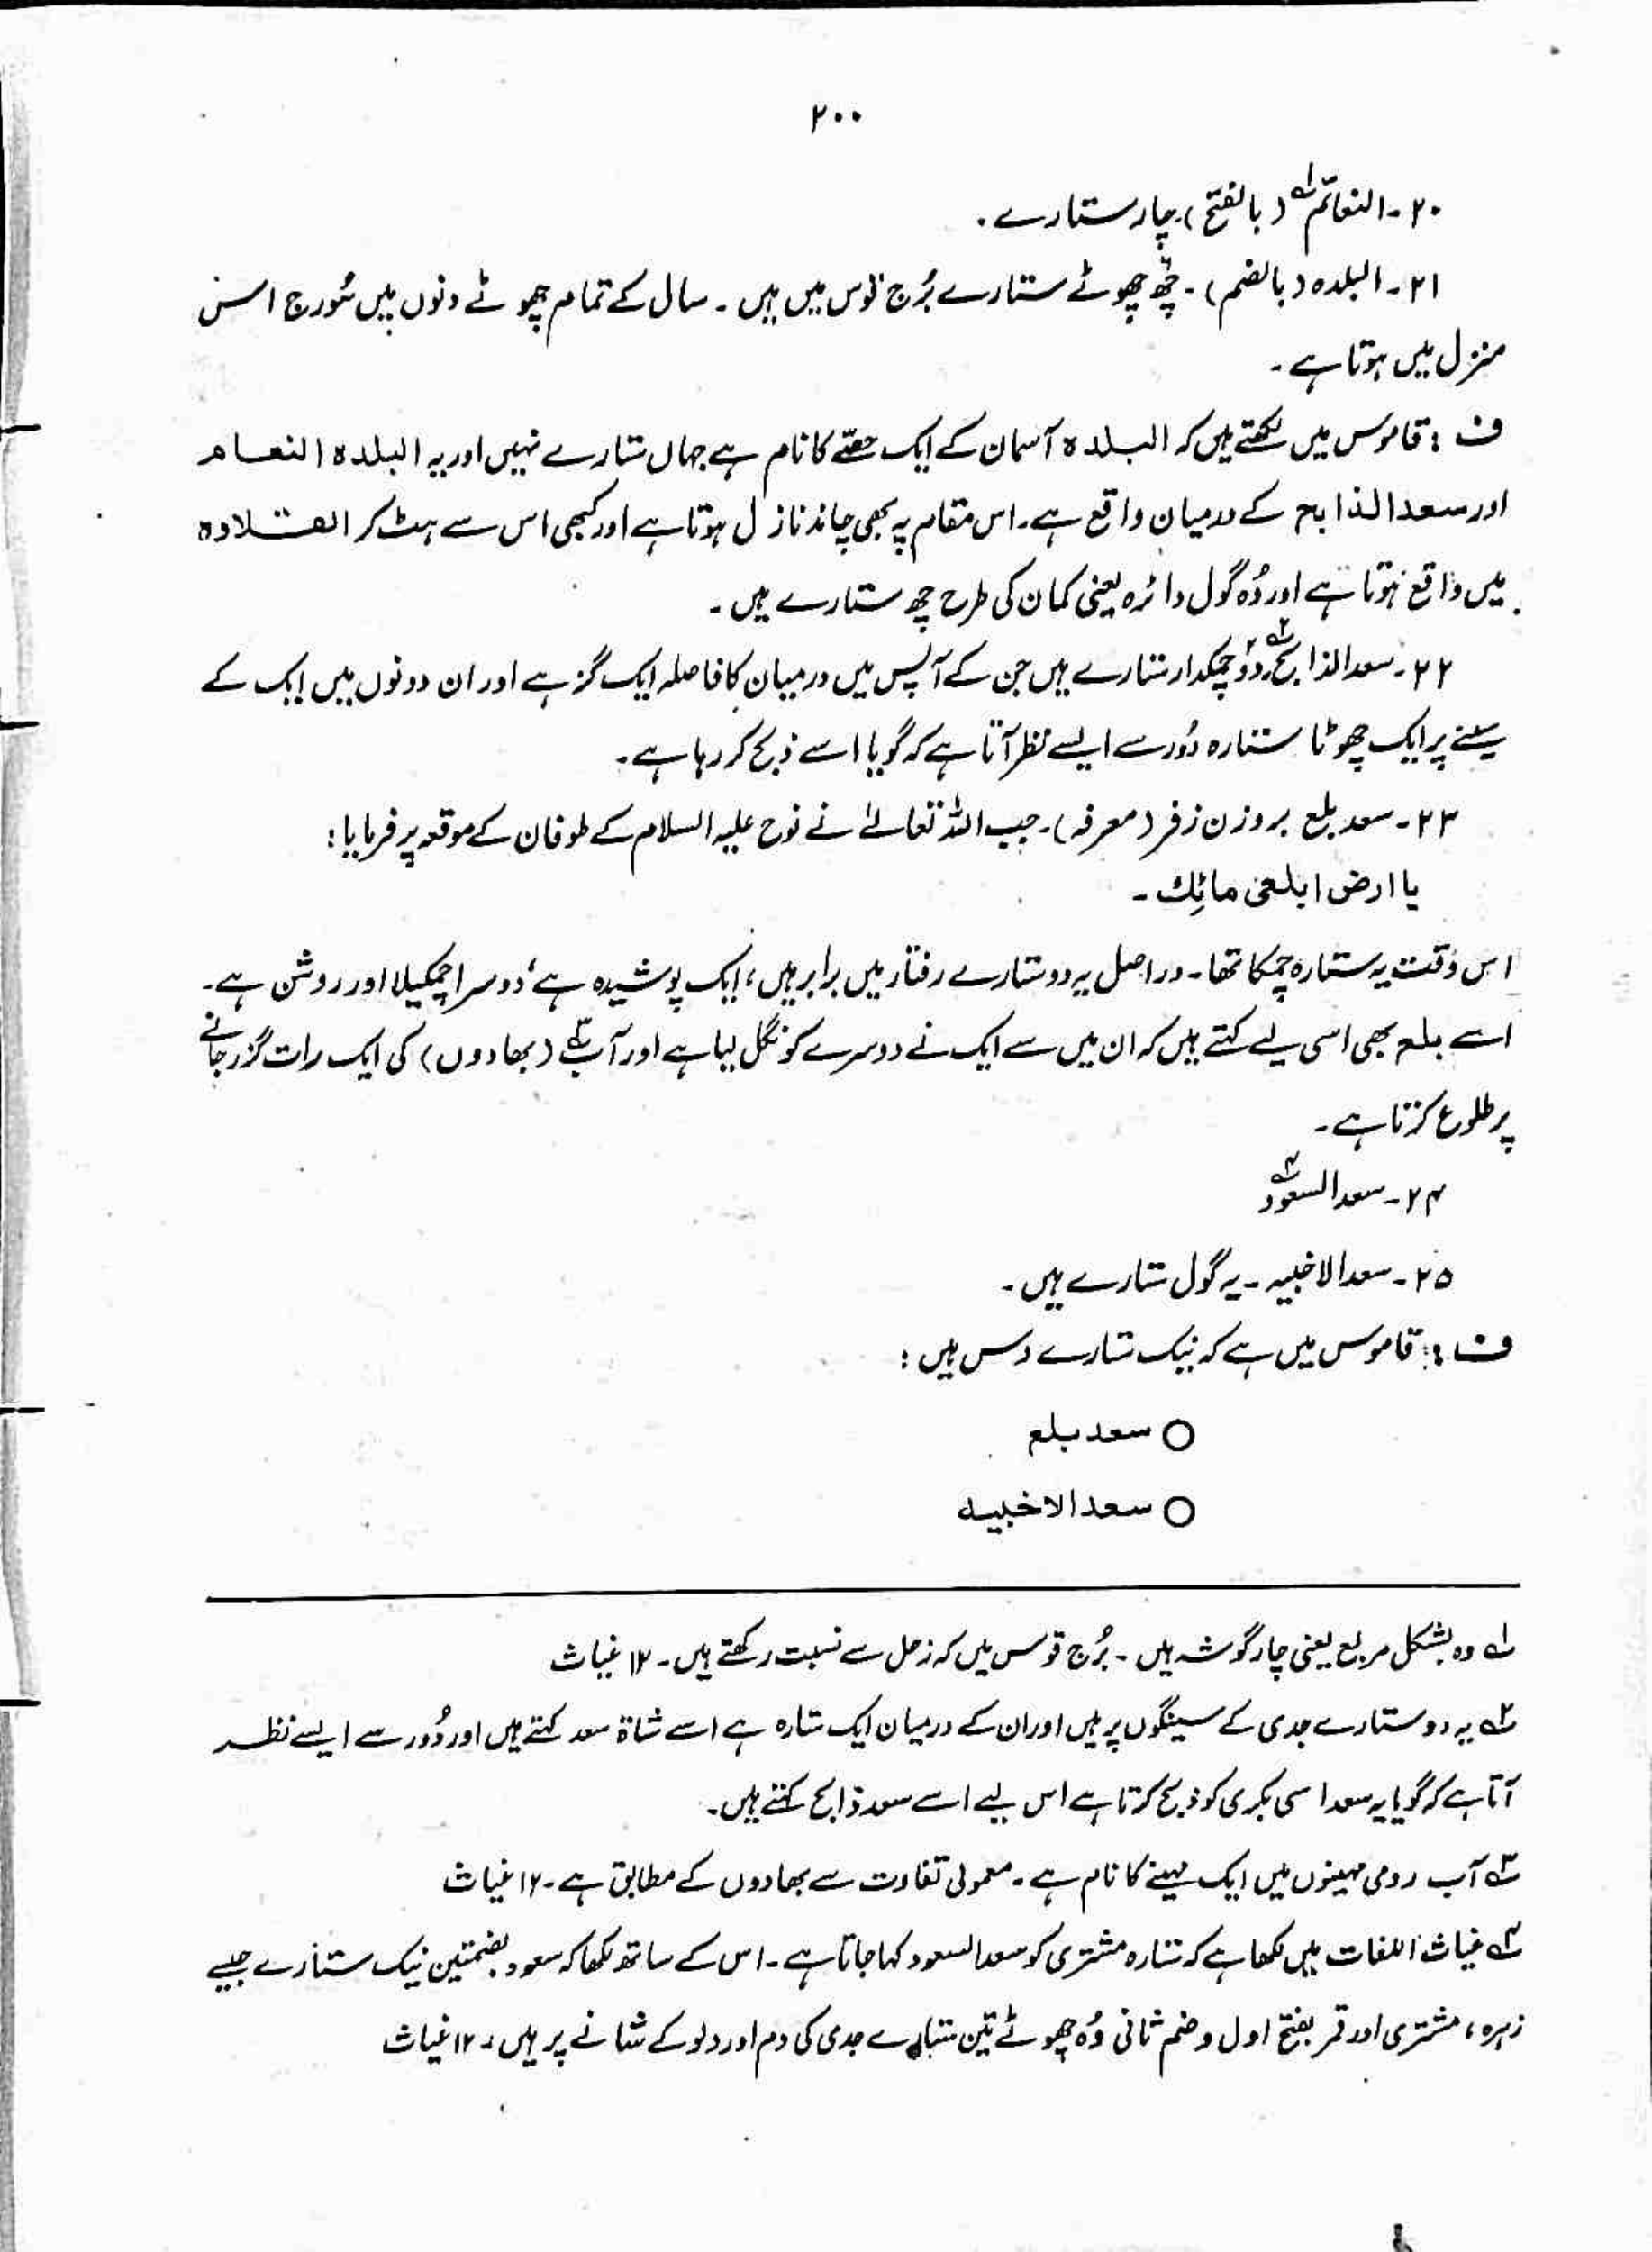 ۲۰۰
۲۰۔ النعائم؂۱ (بالفتح) چار ستارے۔
۲۱۔ البلدہ (بالضم)۔ چھ چھوٹے ستارے بُرج قوس میں ہیں۔ سال کے تمام چھوٹے دنوں میں سُورج اس
منزل میں ہوتا ہے۔
ف : قاموس میں لکھتے ہیں کہ البلدہ آسمان کے ایک حصّے کا نام ہے جہاں ستارے نہیں اور یہ البلدہ النعام
اور سعد الذابح کے درمیان واقع ہے۔ اس مقام پہ بھی چاند نازل ہوتا ہے اور کبھی اس سے ہٹ کر القلادہ
میں واقع ہوتا ہے اور وُہ گول دائرہ یعنی کمان کی طرح چھ ستارے ہیں۔
۲۲۔ سعد الذابح؂۲۔ دوؔ چمکدار ستارے ہیں جن کے آپس میں درمیان کا فاصلہ ایک گز ہے اور ان دونوں میں ایک کے
سینے پر ایک چھوٹا ستارہ دُور سے ایسے نظر آتا ہے کہ گویا اسے ذبح کر رہا ہے۔
۲۳۔ سعد بلع بروزن زفر (معرفہ)۔ جب اللہ تعالےٰ نے نوح علیہ السلام کے طوفان کے موقعہ پر فرمایا :
یا ارض ابلعی مائِک ۔
اس وقت یہ ستارہ چمکا تھا۔ دراصل یہ دو ستارے رفتار میں برابر ہیں، ایک پوشیدہ ہے، دوسرا چمکیلا اور روشن ہے۔
اسے بلع بھی اسی لیے کہتے ہیں کہ ان میں سے ایک نے دوسرے کو نگل لیا ہے اور آب؂۳ (بھادوں) کی ایک رات گزر جانے
پر طلوع کرتا ہے۔
۲۴۔ سعد السعود؂۴
۲۵۔ سعد الاخبیہ۔ یہ گول ستارے ہیں۔
ف : قاموس میں ہے کہ نیک ستارے دس ہیں :
○ سعد بلع
○ سعد الاخبیہ
؂۱ وہ بشکل مربع یعنی چار گوشہ ہیں۔ بُرج قوس میں کہ زحل سے نسبت رکھتے ہیں۔ ۱۲ غیاث
؂۲ یہ دو ستارے جدی کے سینگوں پر ہیں اور ان کے درمیان ایک ستارہ ہے اسے شاۃ سعد کہتے ہیں اور دُور سے ایسے نظر
آتا ہے کہ گویا یہ سعد اسی بکری کو ذبح کرتا ہے اس لیے اسے سعد ذابح کہتے ہیں۔
؂۳ آب رومی مہینوں میں ایک مہینے کا نام ہے۔ معمولی تفاوت سے بھادوں کے مطابق ہے۔ ۱۲ غیاث
؂۴ غیاث اللغات میں لکھا ہے کہ ستارہ مشتری کو سعد السعود کہا جاتا ہے۔ اس کے ساتھ لکھا کہ سعود بضمتین نیک ستارے جیسے
زہرہ، مشتری اور قمر بفتح اول و ضم ثانی وُہ چھوٹے تین ستارے جدی کی دم اور دلو کے شانے پر ہیں۔ ۱۲ غیاث